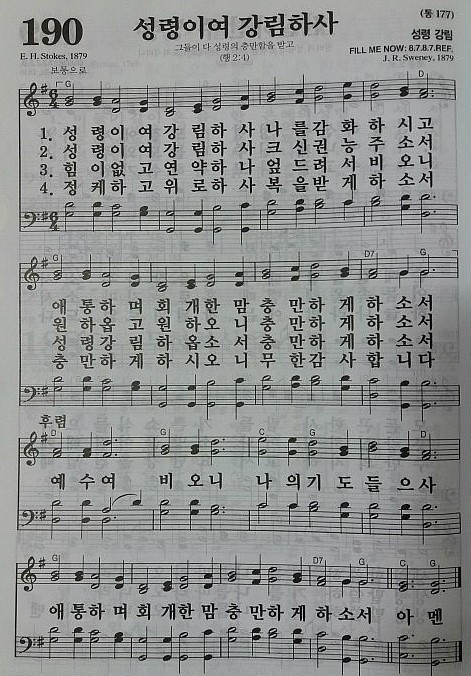 190
성령이여 강림하사
(통 177)
성령 강림
그들이 다 성령의 충만함을 받고
(행 2:4)
E. H. Stokes, 1879
FILL ME NOW: 8.7.8.7.REF.
J. R. Sweney, 1879
보통으로
G D
1. 성 령이 여강 림하 사나 를감 화하 시고
2. 성 령이 여강 림하 사크 신권 능주 소서
3. 힘 이없 고연 약하 나엎 드려 서비 오니
4. 정 케하 고위 로하 사복 을받 게하 소서
G D7 G
애 통하 며회 개한 맘충 만하 게하 소서
원 하옵 고원 하오 니충 만하 게하 소서
성 령강 림하 옵소 서충 만하 게하 소서
충 만하 게하 시오 니무 한감 사합 니다
후렴
D G C G D
예 수여 비 오니 나 의기 도들 으사
G D7 G C G
애 통하 며회 개한 맘충 만하 게하 소서 아 멘